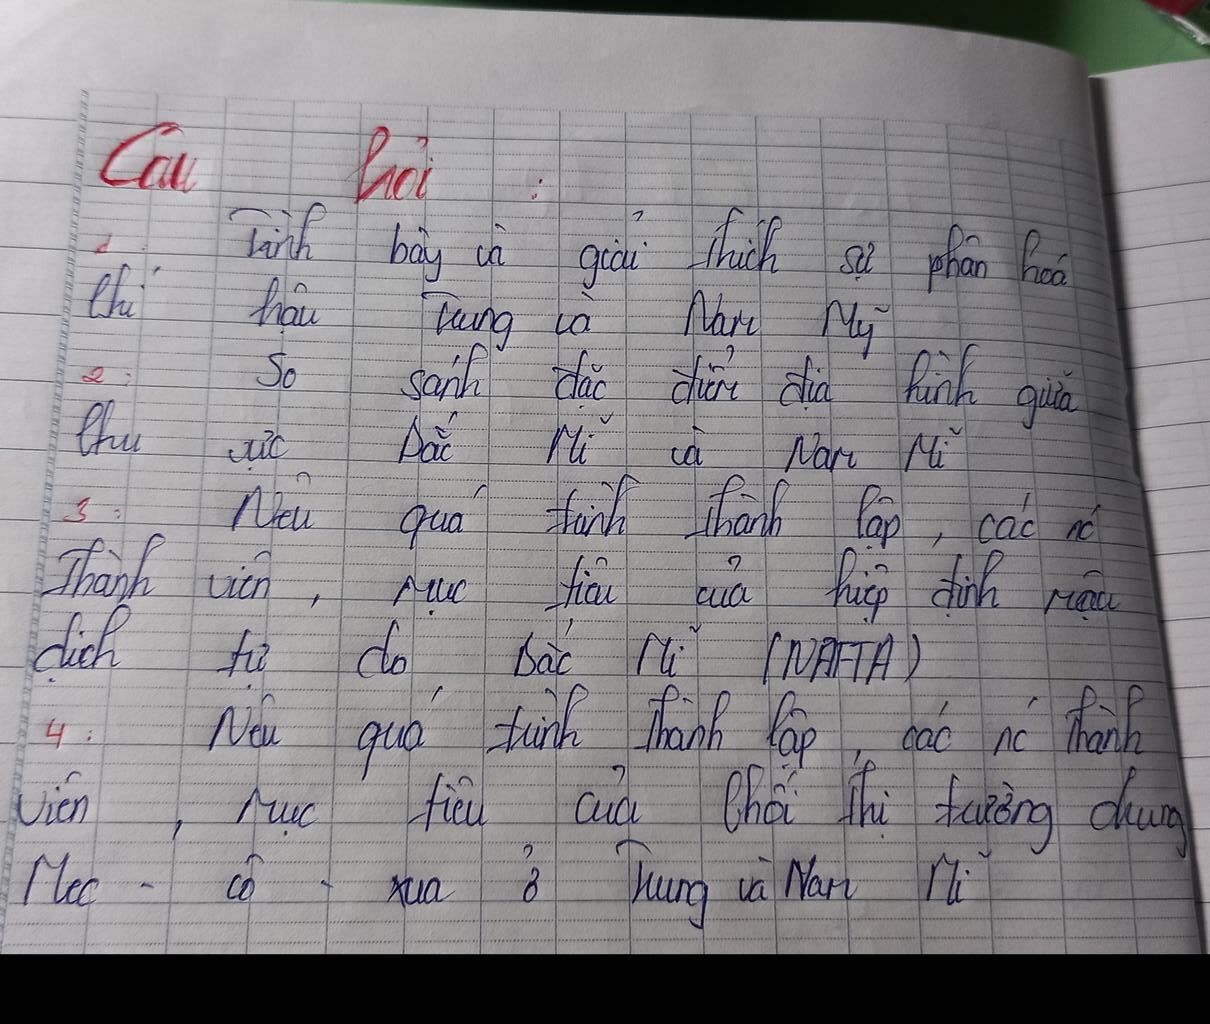 Câu hỏi :
1. Trình bày và giải thích sự phân hoá
khí hậu Trung và Nam Mỹ
2: So sánh đặc điểm địa hình giữa
khu vực Bắc Mĩ và Nam Mĩ
3: Nêu quá trình thành lập, các nc
Thành viên, mục tiêu của hiệp định mậu
dịch tự do Bắc Mĩ (NAFTA)
4: Nêu quá trình thành lập, các nc thành
viên, mục tiêu của khối thị trường chung
Mec - cô - xua ở Trung và Nam Mĩ